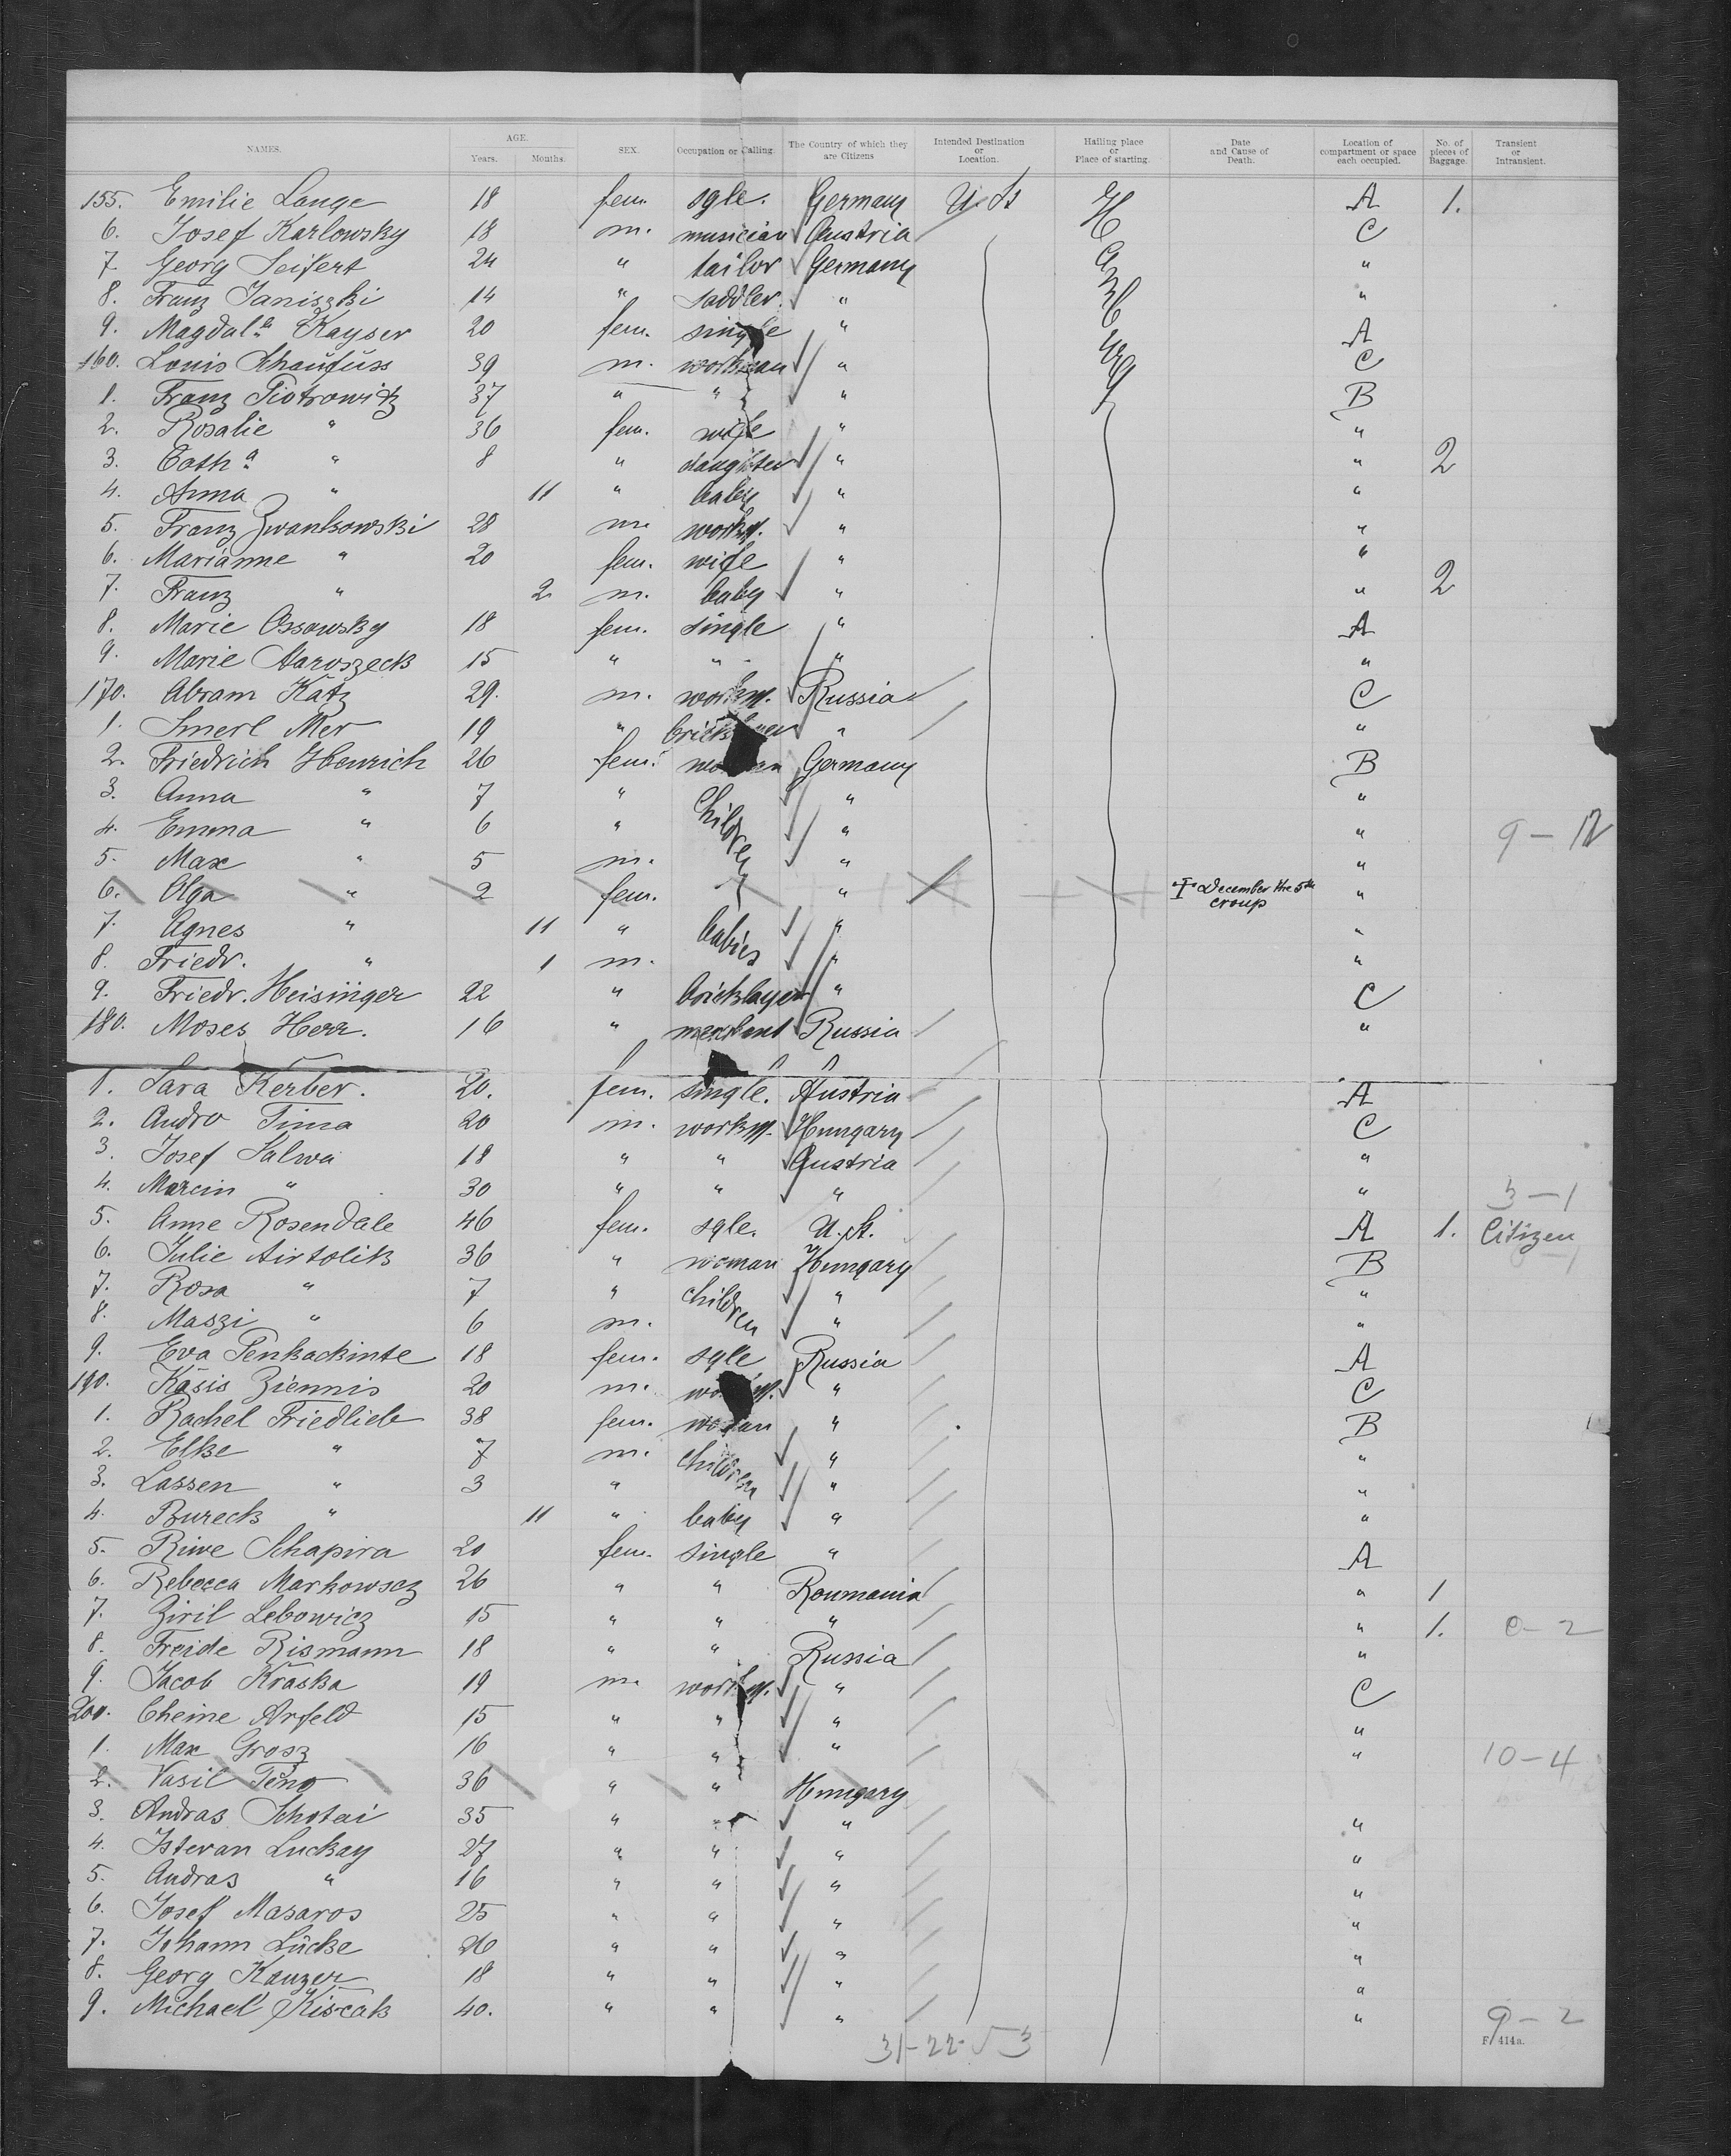 NAMES. AGE. Years. Months. SEX. Occupation or Calling. The Country of which they are Citizens Intended Destination or Location. Hailing place or Place of starting. Date and Cause of Death. Location of compartment or space each occupied. No. of pieces of Baggage. Transient or Intransient.
155. Emilie Lange 18 fem. sgle. Germany U. St A 1.
6. Josef Karlowsky 18 m. musician Austria C
7. Georg Seifert 24 " tailor Germany "
8. Franz Janiszki 14 " saddler. " "
9. Magdal a Kayser 20 fem. single " A
160. Louis Schaufuss 39 m. workman " C
1. Franz Piotrowitz 37 " " " B
2. Rosalie " 36 fem. wife " "
3. Cath a " 8 " daughter " " 2
4. Anna " 11 " baby " "
5. Franz Zwantkowski 28 m. workm. " "
6. Marianne " 20 fem. wife " "
7. Franz " 2 m. baby " " 2
8. Marie Ossowsky 18 fem. single " A
9. Marie Haroszeck 15 " " " "
170. Abram Katz 29. m. workm. Russia C
1. Smerl Mer 19 " " "
2. Friedrich Henrich 26 fem. woman Germany B
3. Anna " 7 " Children " "
4. Emma " 6 " " " 9 - 12
5. Max " 5 m. " "
6. Olga " 2 fem. " † December the 5th croup "
7. Agnes " 11 " babies " "
8. Friedr. " 1 m. " "
9. Friedr. Heisinger 22 " bricklayer " C
180. Moses Herr. 16 " merchant Russia "
1. Sara Kerber. 20. fem. single. Austria A
2. Andro Tima 20 m. workm. Hungary C
3. Josef Salwa 18 " " Austria "
4. Marcin " 30 " " " " 3 - 1
5. Anne Rosendale 46 fem. sgle. U. St. A 1. Citizen
6. Julie Airtolik 36 " woman Hungary B
7. Rosa " 7 " children " "
8. Maszi " 6 m. " "
9. Eva Penkackinte 18 fem. sgle Russia A
190. Kasis Ziennis 20 m. workm. " C
1. Rachel Friedlieb 38 fem. woman " B
2. Elke " 7 m. children " "
3. Lassen " 3 " " "
4. Bureck " 11 " baby " "
5. Riwe Schapira 20 fem. single " A
6. Rebecca Markowscz 26 " " Roumania " 1
7. Ziril Lebowicz 15 " " " " 1. 0 - 2
8. Freide Rismann 18 " " Russia "
9. Jacob Kraska 19 m. workm. " C
200. Cheine Arfeld 15 " " " "
1. Max Grosz 16 " " " " 10 - 4
2. Vasil Teno 36 " " Hungary
3. Andras Schotai 35 " " " "
4. Istevan Luckay 27 " " " "
5. Andras " 16 " " " "
6. Josef Masaros 25 " " " "
7. Johann Lücke 26 " " " "
8. Georg Kanzer 18 " " " "
9. Michael Kiscak 40. " " " " 9 - 2
31 - 22 - √ 3
F 414a.